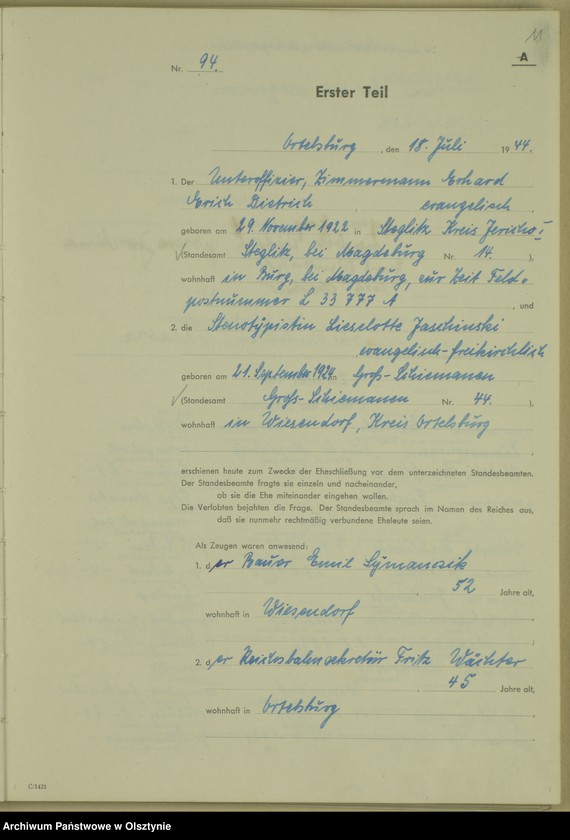 11
A
Nr. 94.
Erster Teil
Ortelsburg, den 18. Juli 1944.
1. Der Unteroffizier, Zimmermann Erhard
Erich Dietrich, evangelisch
geboren am 29. November 1922 in Steglitz Kreis Jericho I
(Standesamt Steglitz, bei Magdeburg Nr. 14. ),
wohnhaft in Burg, bei Magdeburg, zur Zeit Feld-
postnummer L 33 777 A, und
2. die Stenotypistin Lieselotte Jaschinski
, evangelisch-freikirchlich
geboren am 21. September 1924 in Groß-Schiemanen
(Standesamt Groß-Schiemanen Nr. 44. ),
wohnhaft in Wiesendorf, Kreis Ortelsburg
erschienen heute zum Zwecke der Eheschließung vor dem unterzeichneten Standesbeamten.
Der Standesbeamte fragte sie einzeln und nacheinander,
ob sie die Ehe miteinander eingehen wollen.
Die Verlobten bejahten die Frage. Der Standesbeamte sprach im Namen des Reiches aus,
daß sie nunmehr rechtmäßig verbundene Eheleute seien.
Als Zeugen waren anwesend:
1. der Bauer Emil Symanozik
, 52 Jahre alt,
wohnhaft in Wiesendorf
;
2. der Reichsbahnsekretär Fritz Wächter
, 45 Jahre alt,
wohnhaft in Ortelsburg
.
C/1421
Archiwum Państwowe w Olsztynie